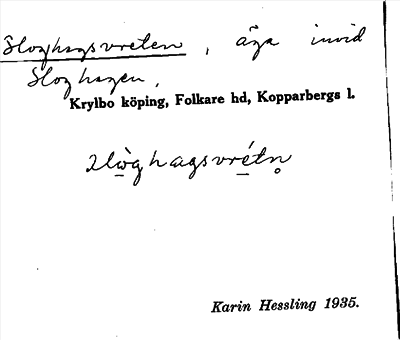 Sloghagsvreten, äga invid
Sloghagen,
Krylbo köping, Folkare hd, Kopparbergs l.
slòghagsvrétn̥
Karin Hessling 1935.